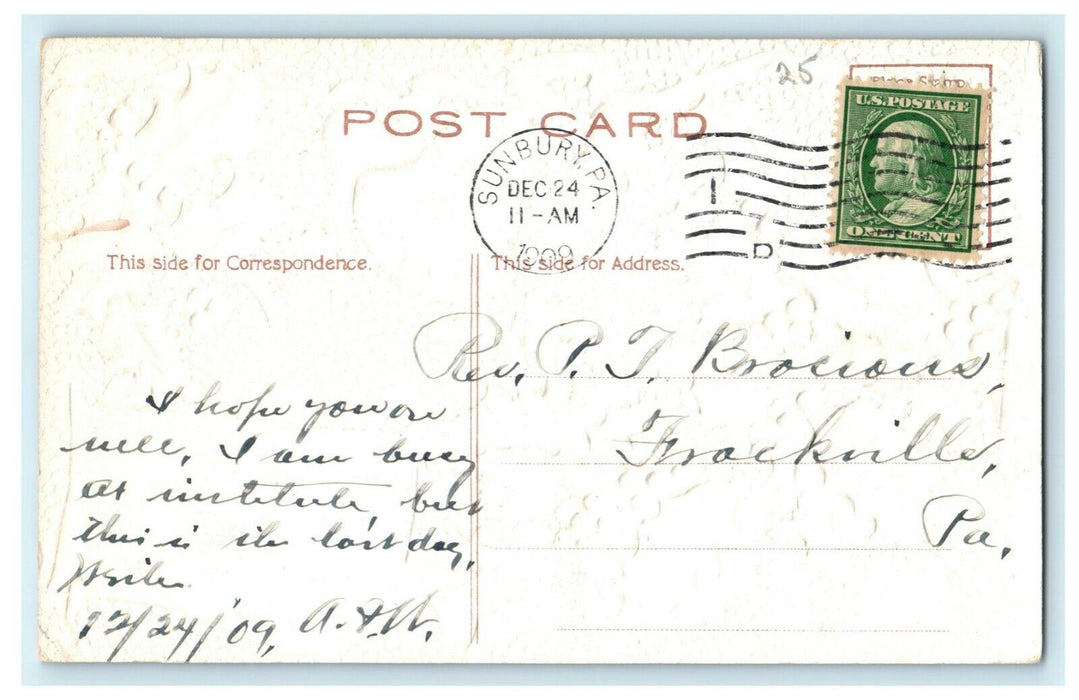 25
Place Stamp
POST CARD
U.S. POSTAGE
ONE CENT
SUNBURY, PA.
DEC 24
11-AM
1909
1
D
This side for Correspondence.
This side for Address.
Rev. P. T. Brosious,
Frackville,
Pa,
I hope you are
well, I am busy
at institute, but
this is the last day,
Write
12/24/'09, A. & W.